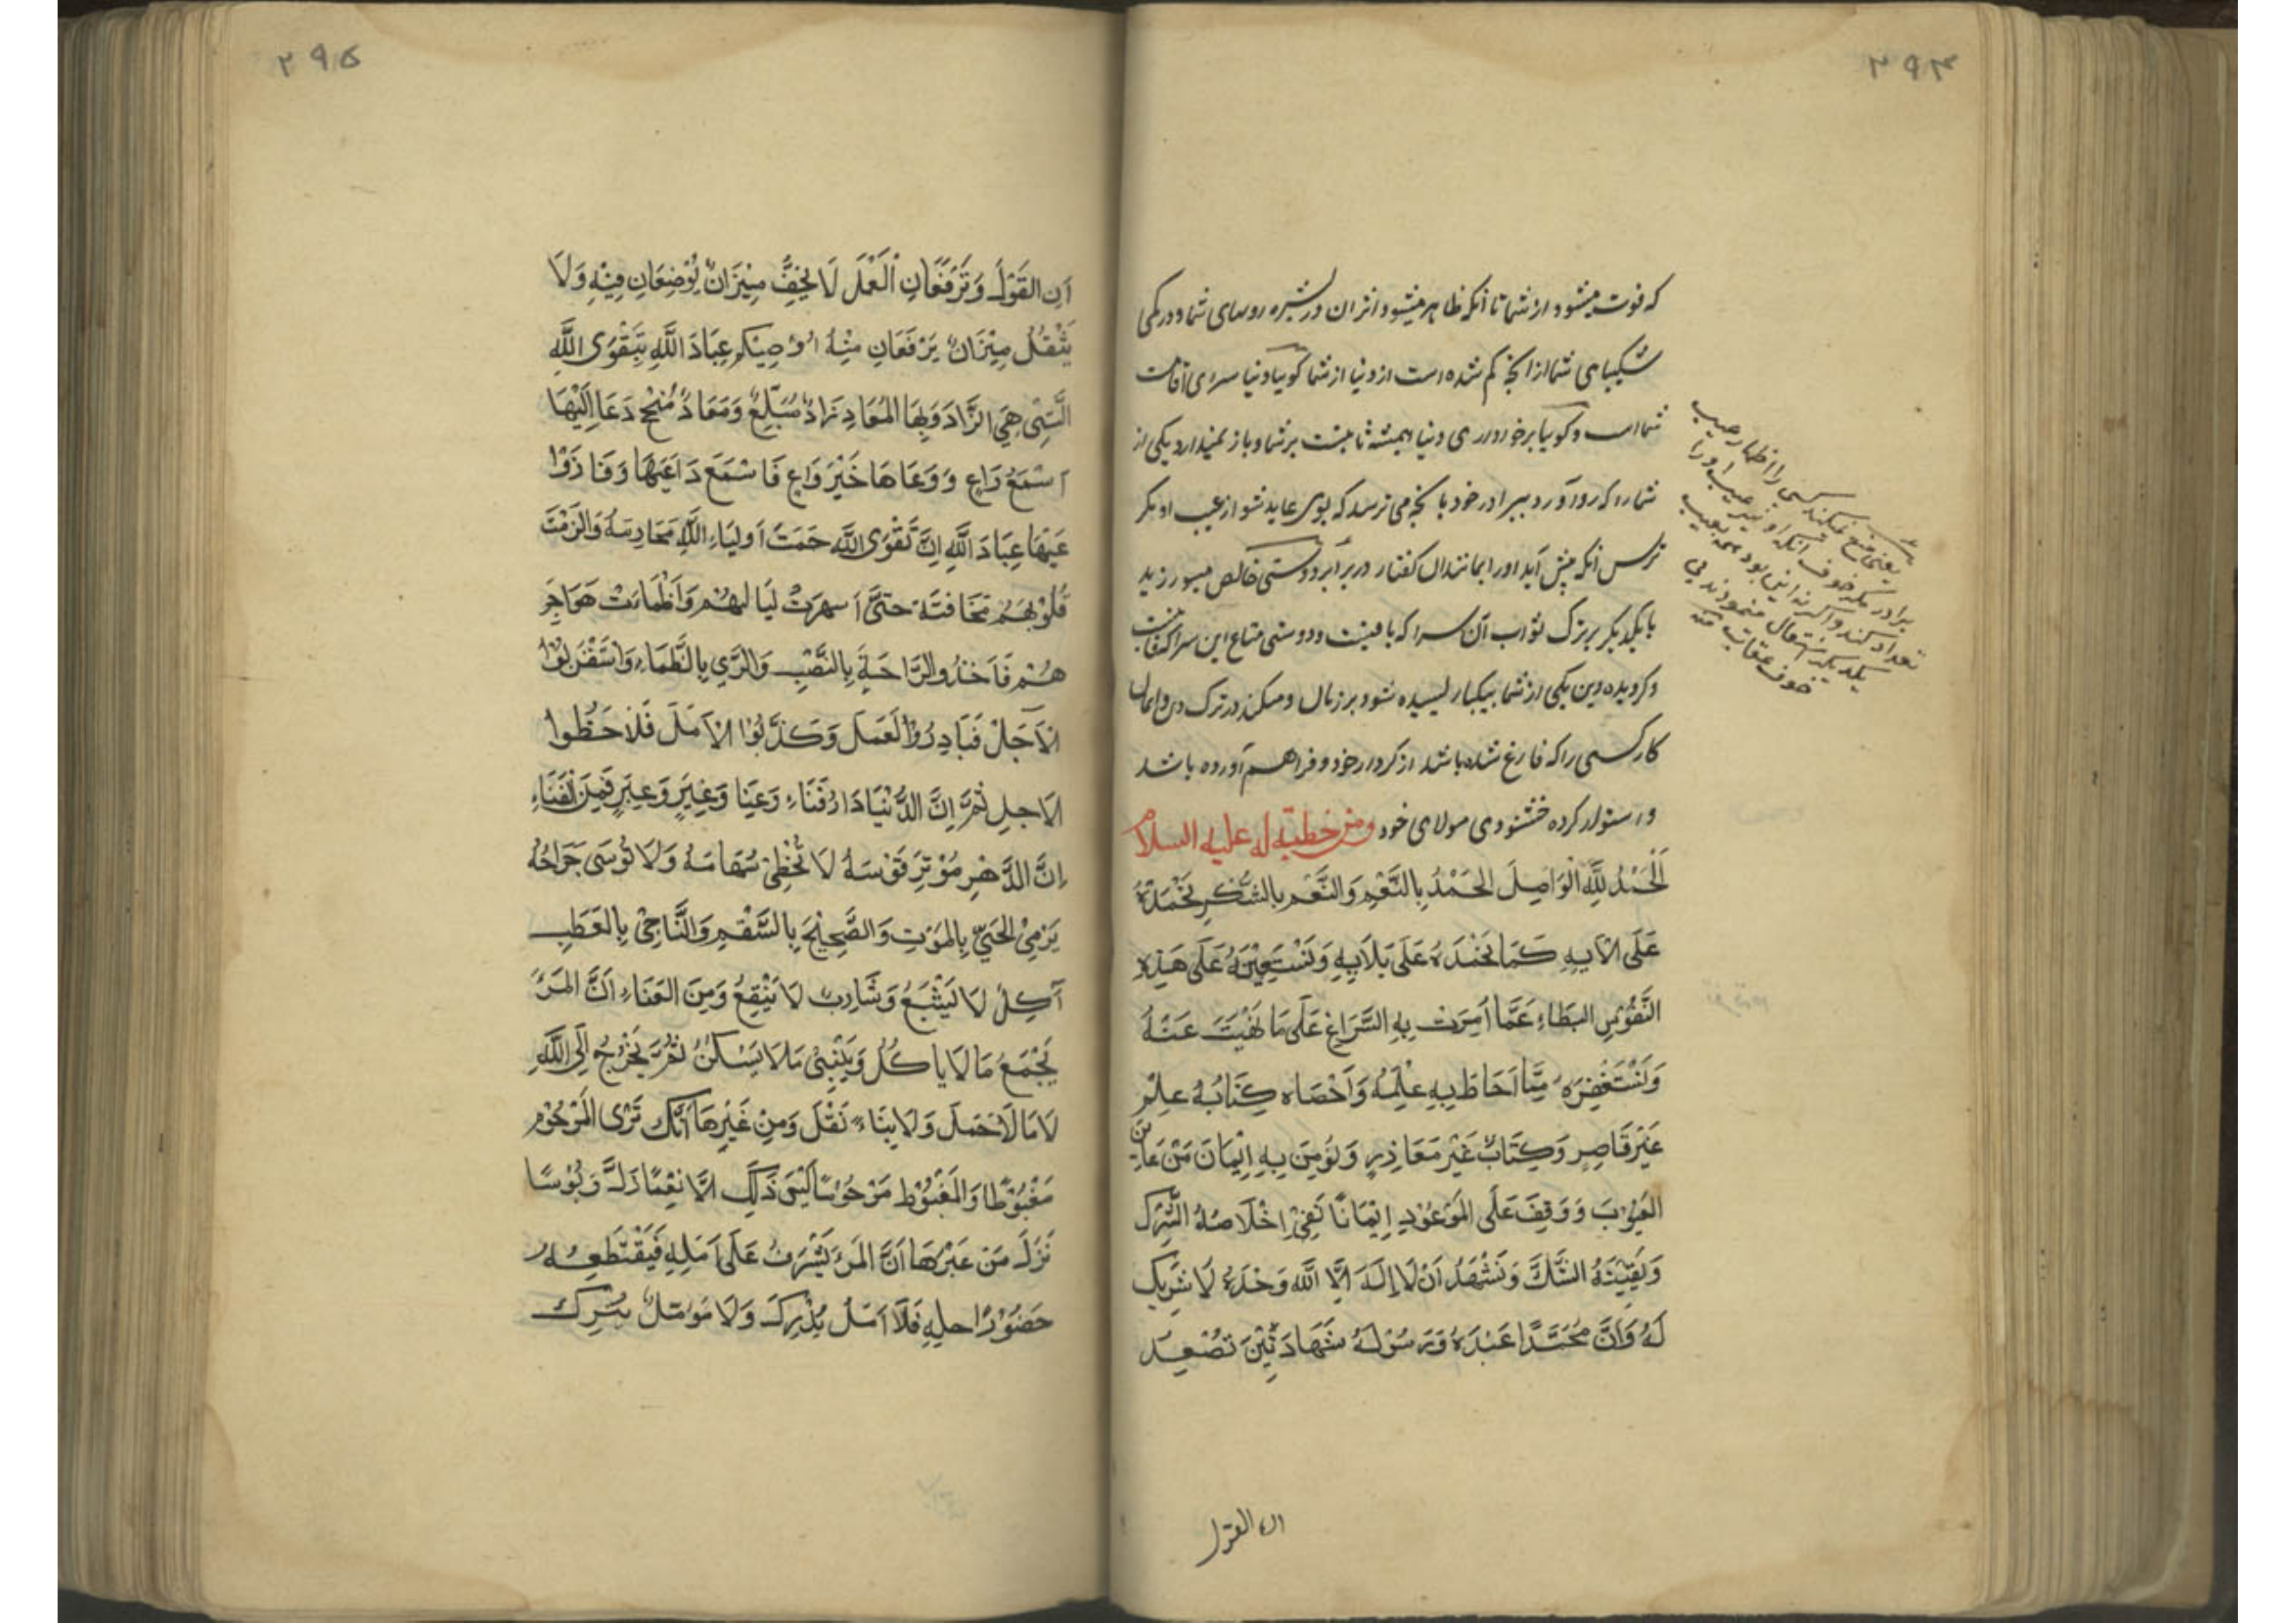 ۲۹۴
که فوت میشود از شما تا آنکه ظاهر میشود اثر آن در بشره روهای شما و در کمی
شکیبایی شما از آنچه کم شده است از دنیا از شما گویا دنیا سرای اقامت
شما است و گویا برخورداری دنیا همیشه ثابتست بر شما و باز نمیدارد یکی از
شما را که رو آورد ببرادر خود بآنچه می ترسد که بوی عاید شود از عیب او مگر
ترس آنکه پیش آید او را بمانند آن گفتار در برابر دوستی خالص میورزید
با یکدیگر بر ترک ثواب آن سرا که باقیست و دوستی متاع این سرا که فانیست
و گردیده دین یکی از شما بیکبار لیسیده شود بر زبان و میکند در ترک دین و ایمان
کار کسی را که فارغ شده باشد از کردار خود و فراهم آورده باشد
و استوار کرده خشنودی مولای خود ومن خطبة له علیه السلام
اَلْحَمْدُ لِلَّهِ الْوَاصِلِ الحَمْدُ بِالنَّعَمِ وَالنَّعَمِ بِالشُّكْرِ نَحْمَدُهُ
عَلَى الآيِهِ كَمَا نَحْمَدُهُ عَلَى بَلَايِهِ وَنَسْتَعِيْنَهُ عَلَى هَذِهِ
النَّفُوْسِ البَطَاءِ عَمَّا اُمِرَتْ بِهِ السَّرَاعِ عَلَى مَا نُهِيَتْ عَنْهُ
وَنَسْتَغْفِرَهُ مِمَّا اَحَاطَ بِهِ عِلْمُهُ وَاَحْصَاهُ كِتَابُهُ عِلْمٌ
غَيْرَ قَاصِرٍ وَكِتَابٌ غَيْرَ مَغَادِرٍ وَنُؤْمِنَ بِهِ اِيْمَانَ مَنْ عَايَنَ
الغُيُوْبَ وَوَقَفَ عَلَى المَوْعُوْدِ اِيْمَانًا نَفِىْ اِخْلَاصُهُ الشِّرْكَ
وَيَقِيْنَهُ الشَّكَّ وَنَشْهَدُ اَنْ لَا اِلَهَ اِلَّا اللَّهَ وَحْدَهُ لَا شَرِيْكَ
لَهُ وَاَنَّ مُحَمَّدًا عَبْدَهُ وَرَسُوْلَهُ شَهَادَتَيْنِ تُصْعِدَ
یعنی منع نمیکند کسی را اظهار عیب
برادر مگر خوف آنکه او نیز عیب او را
تعداد کند و اگر نه این بود همه بعیب
یکدیگر اشتغال مینمودند بی
خوف عقاب منه
ان القول
۲۹۵
اَنِ القَوْلَ وَتَرْفَعَانِ اَلْعَمَلَ لَا يَخِفُّ مِيْزَانٌ يُوْضِعَانِ فِيْهِ وَلَا
يَثْقُلُ مِيْزَانٌ يَرْفَعَانِ مِنْهُ اُوْصِيْكُمْ عِبَادَ اللَّهِ بِتَقْوَى اللَّهِ
الَّتِىْ هِىَ الزَّادَ وَبِهَا المَعَادِ زَادٌ مُبَلِّغٌ وَمَعَادٌ مُنْجِحٌ دَعَا اِلَيْهَا
اَسْمَعُ دَاعٍ وَوَعَاهَا خَيْرَ وَاعٍ فَاَسْمَعَ دَاعِيَهَا وَفَازَ وَا
عَيْهَا عِبَادَ اللَّهِ اِنَّ تَقْوَى اللَّهِ حَمَتْ اَولِيَاءِ اللَّهِ مَحَارِمَهُ وَالزَمَتْ
قُلُوْبَهُمْ مَخَافَتَهُ حَتَّى اَسْهَرَتْ لَيَالِيَهُمْ وَاَظْمَأَتْ هَوَاجِرَ
هُمْ فَاَخَذُوالرَّاحَةِ بِالنَّصَبِ وَالرَّيِ بِالظَّمَاءِ وَاسْتَقْرَبُوْا
الآجَلَ فَبَادِرُوْا لْعَمَلَ وَكَذَّبُوْا الاَمَلَ فَلَاحَظُوا
الاَجلِ ثُمَّ اِنَّ الدُّنْيَا دَارُ فَنَاءِ وَعَنَا وَغِيَرٍ وَعِبَرٍ فَمِنَ الْفَنَاءِ
اِنَّ الدَّهْرِ مُوْتِرَ قَوْسَهُ لَا تُخْطِئُ سَهَامَهُ وَلَا تُوسَى جَرَاحُهُ
يَرْمِىْ الحَىَّ بِالمَوْتِ وَالصَّحِيْحَ بِالسَّقْمِ وَالنَّاجِىْ بِالعَطَبِ
آكِلٌ لَا يَشْبَعُ وَشَارِبٌ لَا يَنْقِعُ وَمِنَ العَنَاءِ اَنَّ المَرْءَ
يَجْمَعُ مَا لَا يَاكُلُ وَيَبْنِىْ مَا لَا يَسْكُنُ ثُمَّ يَخْرُجُ اِلَى اللَّهِ
لَا مَا لَا حَمَلَ وَلَا بِنَاءً نَقَلَ وَمِنْ غَيْرِهَا اَنَّكَ تَرَى المَرْحُوْمِ
مَغْبُوْطًا وَالمَغْبُوْطِ مَرْحُوْمًا لَيْسَ ذَلِكَ اِلَّا نَعِيْمًا زَلَّ وَبُوْسًا
نَزَلَ مَنْ عَبْرِهَا اَنَّ المَرْءَ يَشْرَفُ عَلَى اَمَلِهِ فَيَقْتَطِعُهُ
حَضُوْرُ اجلِهِ فَلَا اَمَلٌ يُدْرِكَ وَلَا مَوْمَلٌ يُتْرَكَ